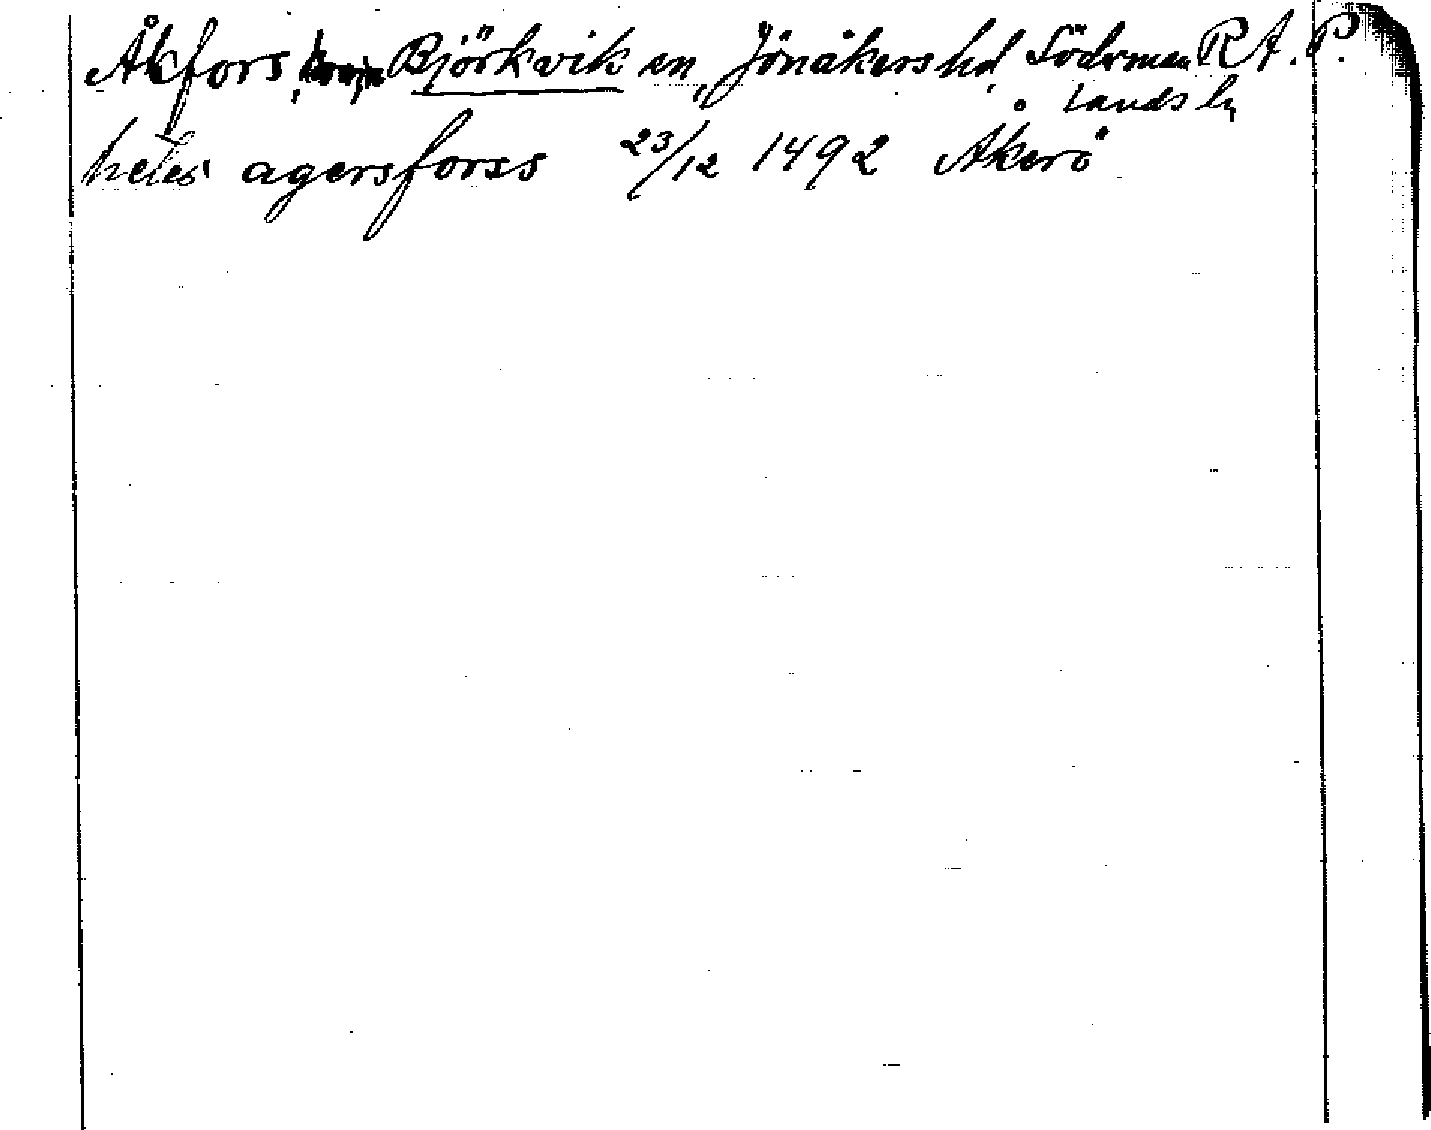 Åkfors, Björkvik sn, Jönåkers hd, Söderman R A. P.
lands l:n
hetes agersforss 23/12 1492 Åkerö